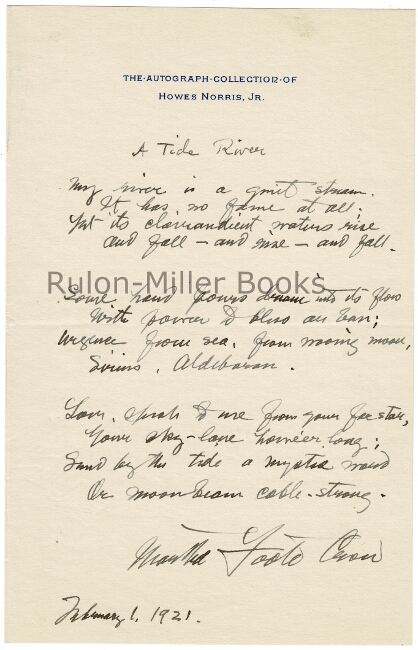 THE·AUTOGRAPH·COLLECTION·OF
HOWES NORRIS, JR.
A Tide River
My river is a quiet stream.
It has no fame at all.
Yet its clairaudient waters rise
And fall – and rise – and fall.
Rulon-Miller Books
Some hand pours dream into its flow
With power to bless or ban;
Urgence from sea, from moving moon,
Sirius, Aldebaran.
Love, speak to me from your far star,
Your sky-lane however long;
Send by the tide a mystic word
On moonbeam cable-strong.
Martha Foote Crow
February 1, 1921.